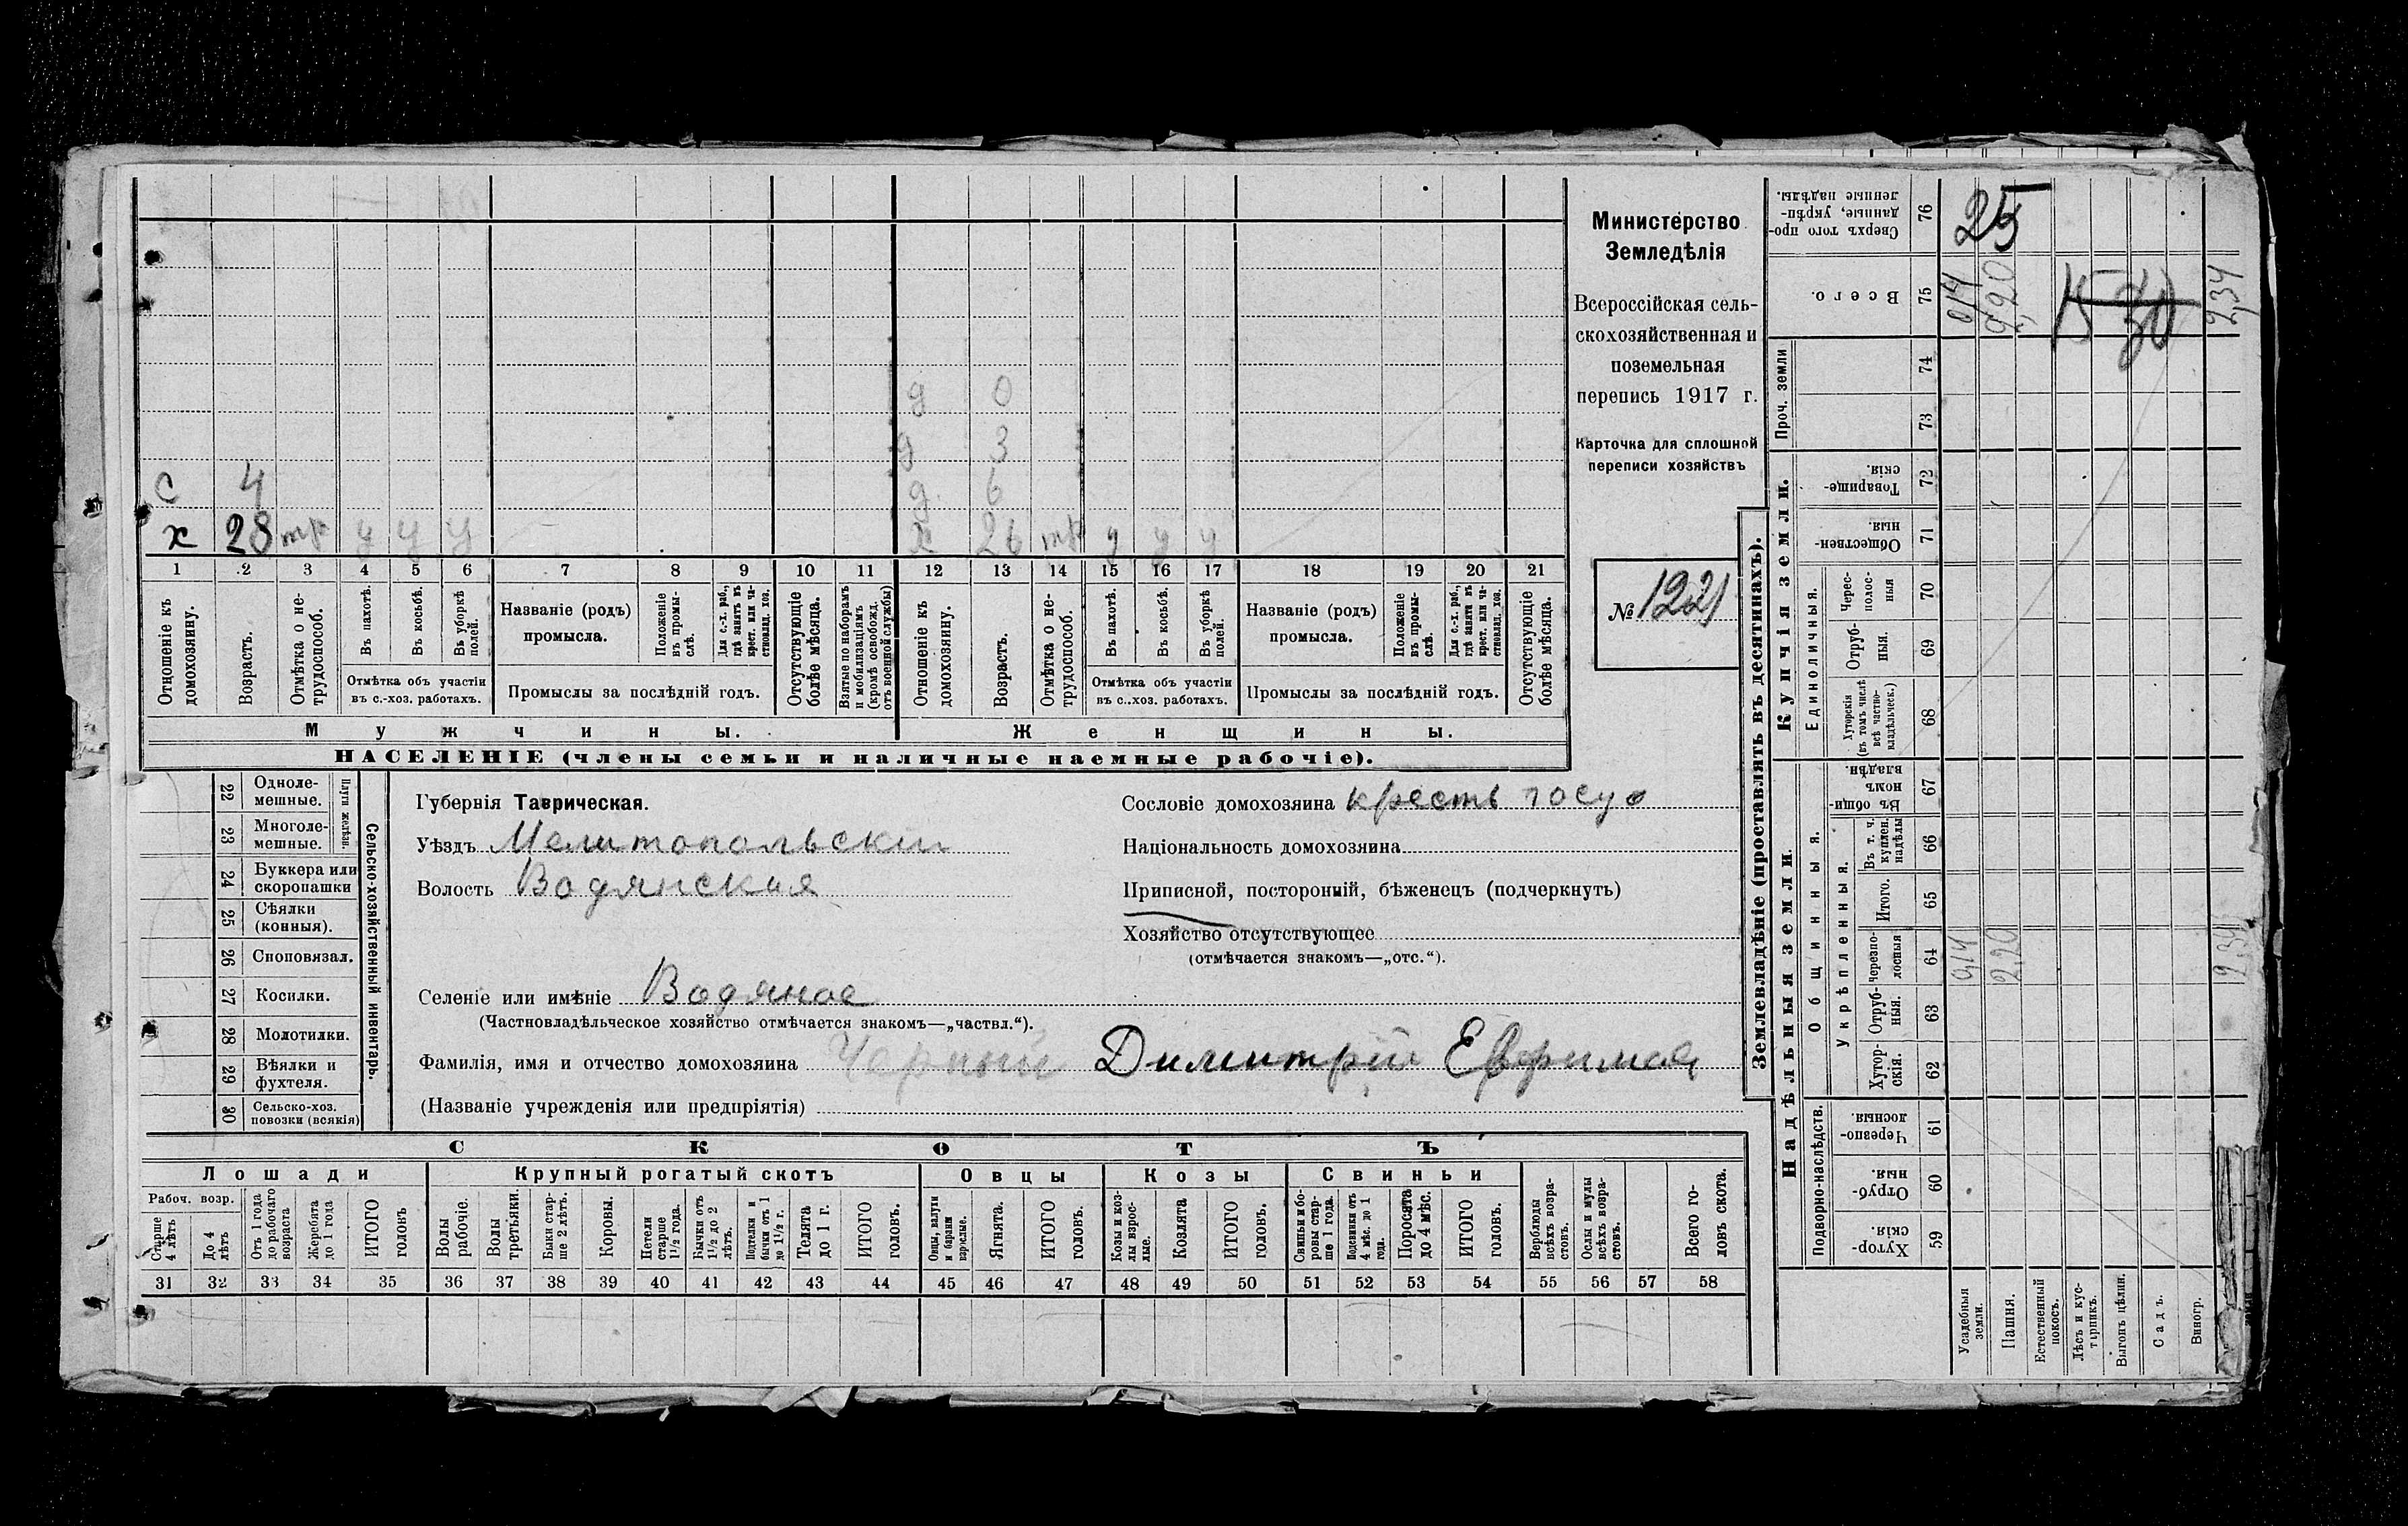 Министерство
Земледѣлія
Всероссійская сель-
скохозяйственная и
поземельная
перепись 1917 г.
Карточка для сплошной
переписи хозяйствъ
№ 1221
д 0
д 3
с 4 д 6
х 28 тр у у у х 26 тр у у у
1 2 3 4 5 6 7 8 9 10 11 12 13 14 15 16 17 18 19 20 21
Отношеніе къ домохозяину.
Возрастъ.
Отмѣтка о не-трудоспособ.
Въ пахотѣ.
Въ косьбѣ.
Въ уборкѣ полей.
Отмѣтка объ участіи
въ с.-хоз. работахъ.
Названіе (родъ)
промысла.
Положеніе въ промы-слѣ.
Для с.-х. раб., гдѣ занятъ въ крест. или ча-стновлад. хоз.
Промыслы за послѣдній годъ.
Отсутствующіе болѣе мѣсяца.
Взятые по наборамъ и мобилизаціямъ (кромѣ освобожд. отъ военной службы)
Отношеніе къ домохозяину.
Возрастъ.
Отмѣтка о не-трудоспособ.
Въ пахотѣ.
Въ косьбѣ.
Въ уборкѣ полей.
Отмѣтка объ участіи
въ с..хоз. работахъ.
Названіе (родъ)
промысла.
Положеніе въ промы-слѣ.
Для с.-х. раб., гдѣ занятъ въ крест. или ча-стновлад. хоз.
Промыслы за послѣдній годъ.
Отсутствующіе болѣе мѣсяца.
Мужчины. Женщины.
НАСЕЛЕНІЕ (члены семьи и наличные наемные рабочіе).
22 Одноле-мешные.
23 Многоле-мешные.
Плуги желѣзн.
24 Буккера или скоропашки
25 Сѣялки (конныя).
26 Сноповязал.
27 Косилки.
28 Молотилки.
29 Вѣялки и фухтеля.
30 Сельско-хоз. повозки (всякія)
Сельско-хозяйственный инвентарь.
Губернія Таврическая.
Уѣздъ Мелитопольскій
Волость Водянская
Сословіе домохозяина крестъ госуд
Національность домохозяина
Приписной, посторонній, бѣженецъ (подчеркнуть)
Хозяйство отсутствующее
(отмѣчается знакомъ—„отс.“).
Селеніе или имѣніе Водяное
(Частновладѣльческое хозяйство отмѣчается знакомъ—„частвл.“).
Фамилія, имя и отчество домохозяина Черный Димитрій Ефимов
(Названіе учрежденія или предпріятія)
СКОТЪ
Лошади Крупный рогатый скотъ Овцы Козы Свиньи
Рабоч. возр.
Старше 4 лѣтъ
До 4 лѣтъ
Отъ 1 года до рабочаго возраста
Жеребята до 1 года
ИТОГО головъ
Волы рабочіе.
Волы третьяки.
Быки стар-ше 2 лѣтъ.
Коровы.
Нетели старше 1½ года.
Бычки отъ 1½ до 2 лѣтъ.
Подтелки и бычки отъ 1 до 1½ г.
Телята до 1 г.
ИТОГО головъ.
Овцы, валухи и бараны взрослые.
Ягнята.
ИТОГО головъ.
Козы и коз-лы взрос-лые.
Козлята
ИТОГО головъ.
Свиньи и бо-ровы стар-ше 1 года.
Подсвинки отъ 4 мѣс. до 1 года.
Поросята до 4 мѣс.
ИТОГО головъ.
Верблюды всѣхъ возра-стовъ.
Ослы и мулы всѣхъ возра-стовъ.
Всего го-ловъ скота.
31 32 33 34 35 36 37 38 39 40 41 42 43 44 45 46 47 48 49 50 51 52 53 54 55 56 57 58
Землевладѣніе (проставлять въ десятинахъ).
Надѣльныя земли.
Купчія земли.
Проч. земли
Подворно-наслѣдств.
Общинныя.
Укрѣпленныя.
Единоличныя.
Сверхъ того про-данные, укрѣп-ленные надѣлы. 76 25
Всего. 75 0,14 2,20 15 30 2,34
74
73
Товарище-скія. 72
Обществен-ныя. 71
Черес-полос-ныя 70
Отруб-ныя. 69
Хуторскія (въ томъ числѣ всѣ частно-владѣльческ.) 68
Въ общи-номъ владѣн. 67
Въ т. ч. куплен. надѣлы 66
Итого. 65
Черезпо-лосныя 64 0,14 2,20 2,34
Отруб-ныя. 63
Хутор-скія. 62
Черезпо-лосныя. 61
Отруб-ныя. 60
Хутор-скія. 59
Усадебныя земли.
Пашня.
Естественный покосъ.
Лѣсъ и кус-тарникъ.
Выгонъ цѣлин.
Садъ.
Виногр.